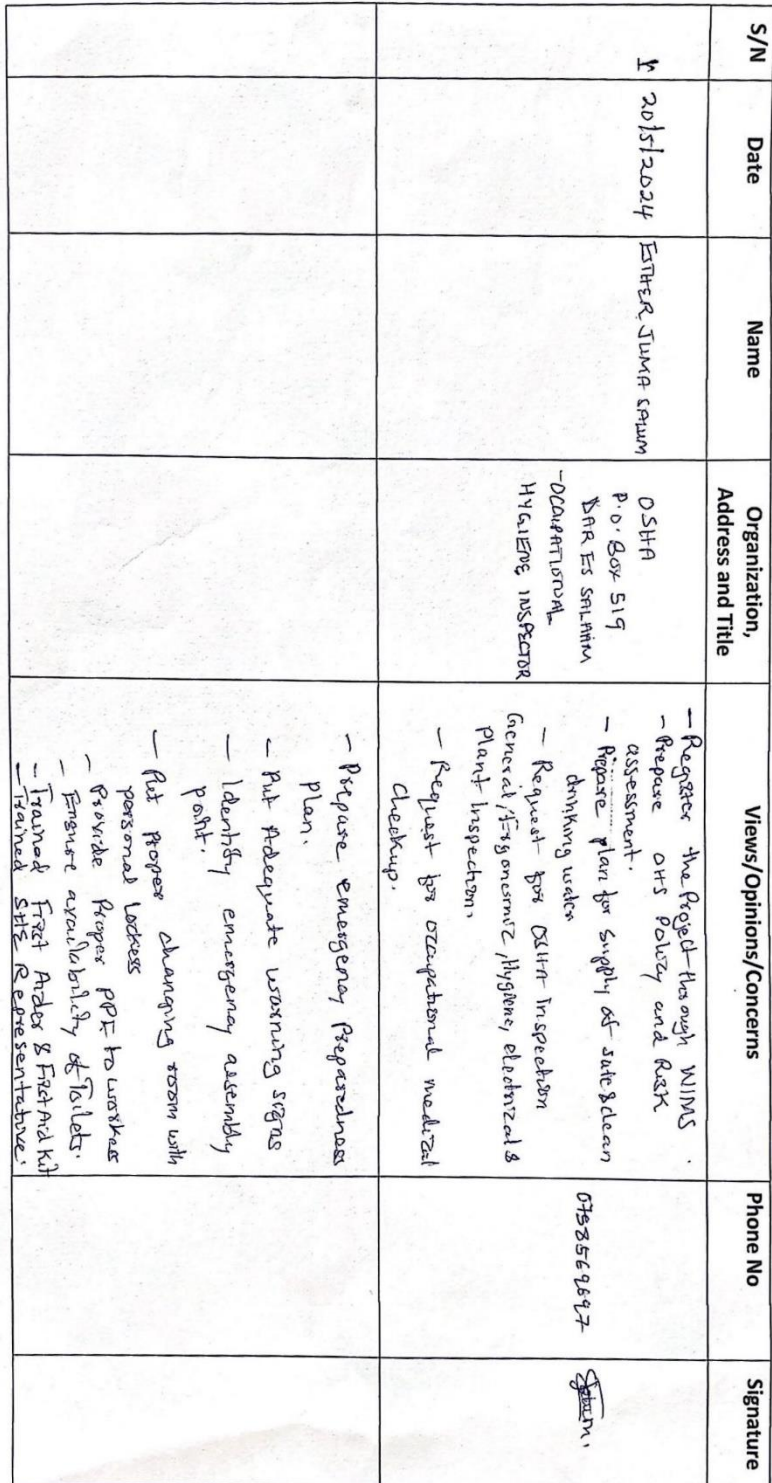 S/N
Date
Name
Organization,
Address and Title
Views/Opinions/Concerns
Phone No
Signature
1.
20/5/2024
ESTHER JUMA SALUM
OSHA
P.O. BOX 519
DAR ES SALAAM
- OCCUPATIONAL
HYGIENE INSPECTOR
- Register the Project through WIMS.
- Prepare OHS Policy and Risk
assessment.
- Prepare plan for supply of safe & clean
drinking water
- Request for OSHA Inspection
General, Ergonomic, Hygiene, electrical &
Plant Inspection.
- Request for occupational medical
checkup.
- Prepare emergency Preparedness
plan.
- Put Adequate warning signs
- Identify emergency assembly
point.
- Put proper changing room with
personal Lockers
- Provide Proper PPE to workers
- Ensure availability of Toilets.
- Trained First Aider & First Aid Kit
- Trained SHE Representative.